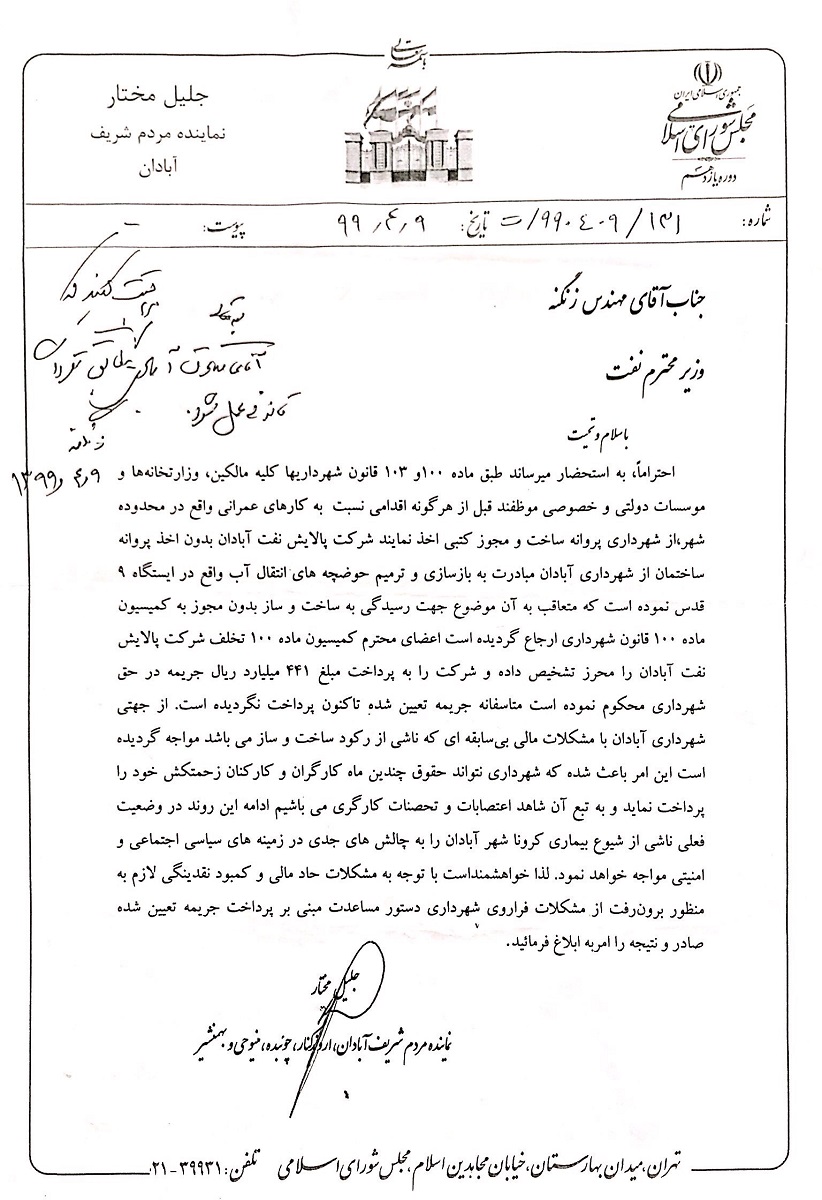 باسمه تعالی
جمهوری اسلامی ایران
مجلس شورای اسلامی
دوره یازدهم
جلیل مختار
نماینده مردم شریف
آبادان
شماره: ۱۳۱/۹۹۰۴۰۹/ت تاریخ: ۹۹/۴/۹ پیوست: -
جناب آقای مهندس زنگنه
وزیر محترم نفت
باسلام و تحیت
بسمه تعالی
آقای
قانونی عمل شود.
زنگنه
۱۳۹۹/۴/۹
احتراماً، به استحضار میرساند طبق ماده ۱۰۰و ۱۰۳ قانون شهرداریها کلیه مالکین، وزارتخانه‌ها و
موسسات دولتی و خصوصی موظفند قبل از هرگونه اقدامی نسبت به کارهای عمرانی واقع در محدوده
شهر،از شهرداری پروانه ساخت و مجوز کتبی اخذ نمایند شرکت پالایش نفت آبادان بدون اخذ پروانه
ساختمان از شهرداری آبادان مبادرت به بازسازی و ترمیم حوضچه های انتقال آب واقع در ایستگاه ۹
قدس نموده است که متعاقب به آن موضوع جهت رسیدگی به ساخت و ساز بدون مجوز به کمیسیون
ماده ۱۰۰ قانون شهرداری ارجاع گردیده است اعضای محترم کمیسیون ماده ۱۰۰ تخلف شرکت پالایش
نفت آبادان را محرز تشخیص داده و شرکت را به پرداخت مبلغ ۴۴۱ میلیارد ریال جریمه در حق
شهرداری محکوم نموده است متاسفانه جریمه تعیین شده تاکنون پرداخت نگردیده است. از جهتی
شهرداری آبادان با مشکلات مالی بی‌سابقه ای که ناشی از رکود ساخت و ساز می باشد مواجه گردیده
است این امر باعث شده که شهرداری نتواند حقوق چندین ماه کارگران و کارکنان زحمتکش خود را
پرداخت نماید و به تبع آن شاهد اعتصابات و تحصنات کارگری می باشیم ادامه این روند در وضعیت
فعلی ناشی از شیوع بیماری کرونا شهر آبادان را به چالش های جدی در زمینه های سیاسی اجتماعی و
امنیتی مواجه خواهد نمود. لذا خواهشمنداست با توجه به مشکلات حاد مالی و کمبود نقدینگی لازم به
منظور برون‌رفت از مشکلات فراروی شهرداری دستور مساعدت مبنی بر پرداخت جریمه تعیین شده
صادر و نتیجه را امربه ابلاغ فرمائید.
جلیل مختار
نماینده مردم شریف آبادان، اروندکنار، چوئبده، فیوحی و بهمنشیر
تهران، میدان بهارستان، خیابان مجاهدین اسلام، مجلس شورای اسلامی تلفن: ۳۹۹۳۱-۰۲۱